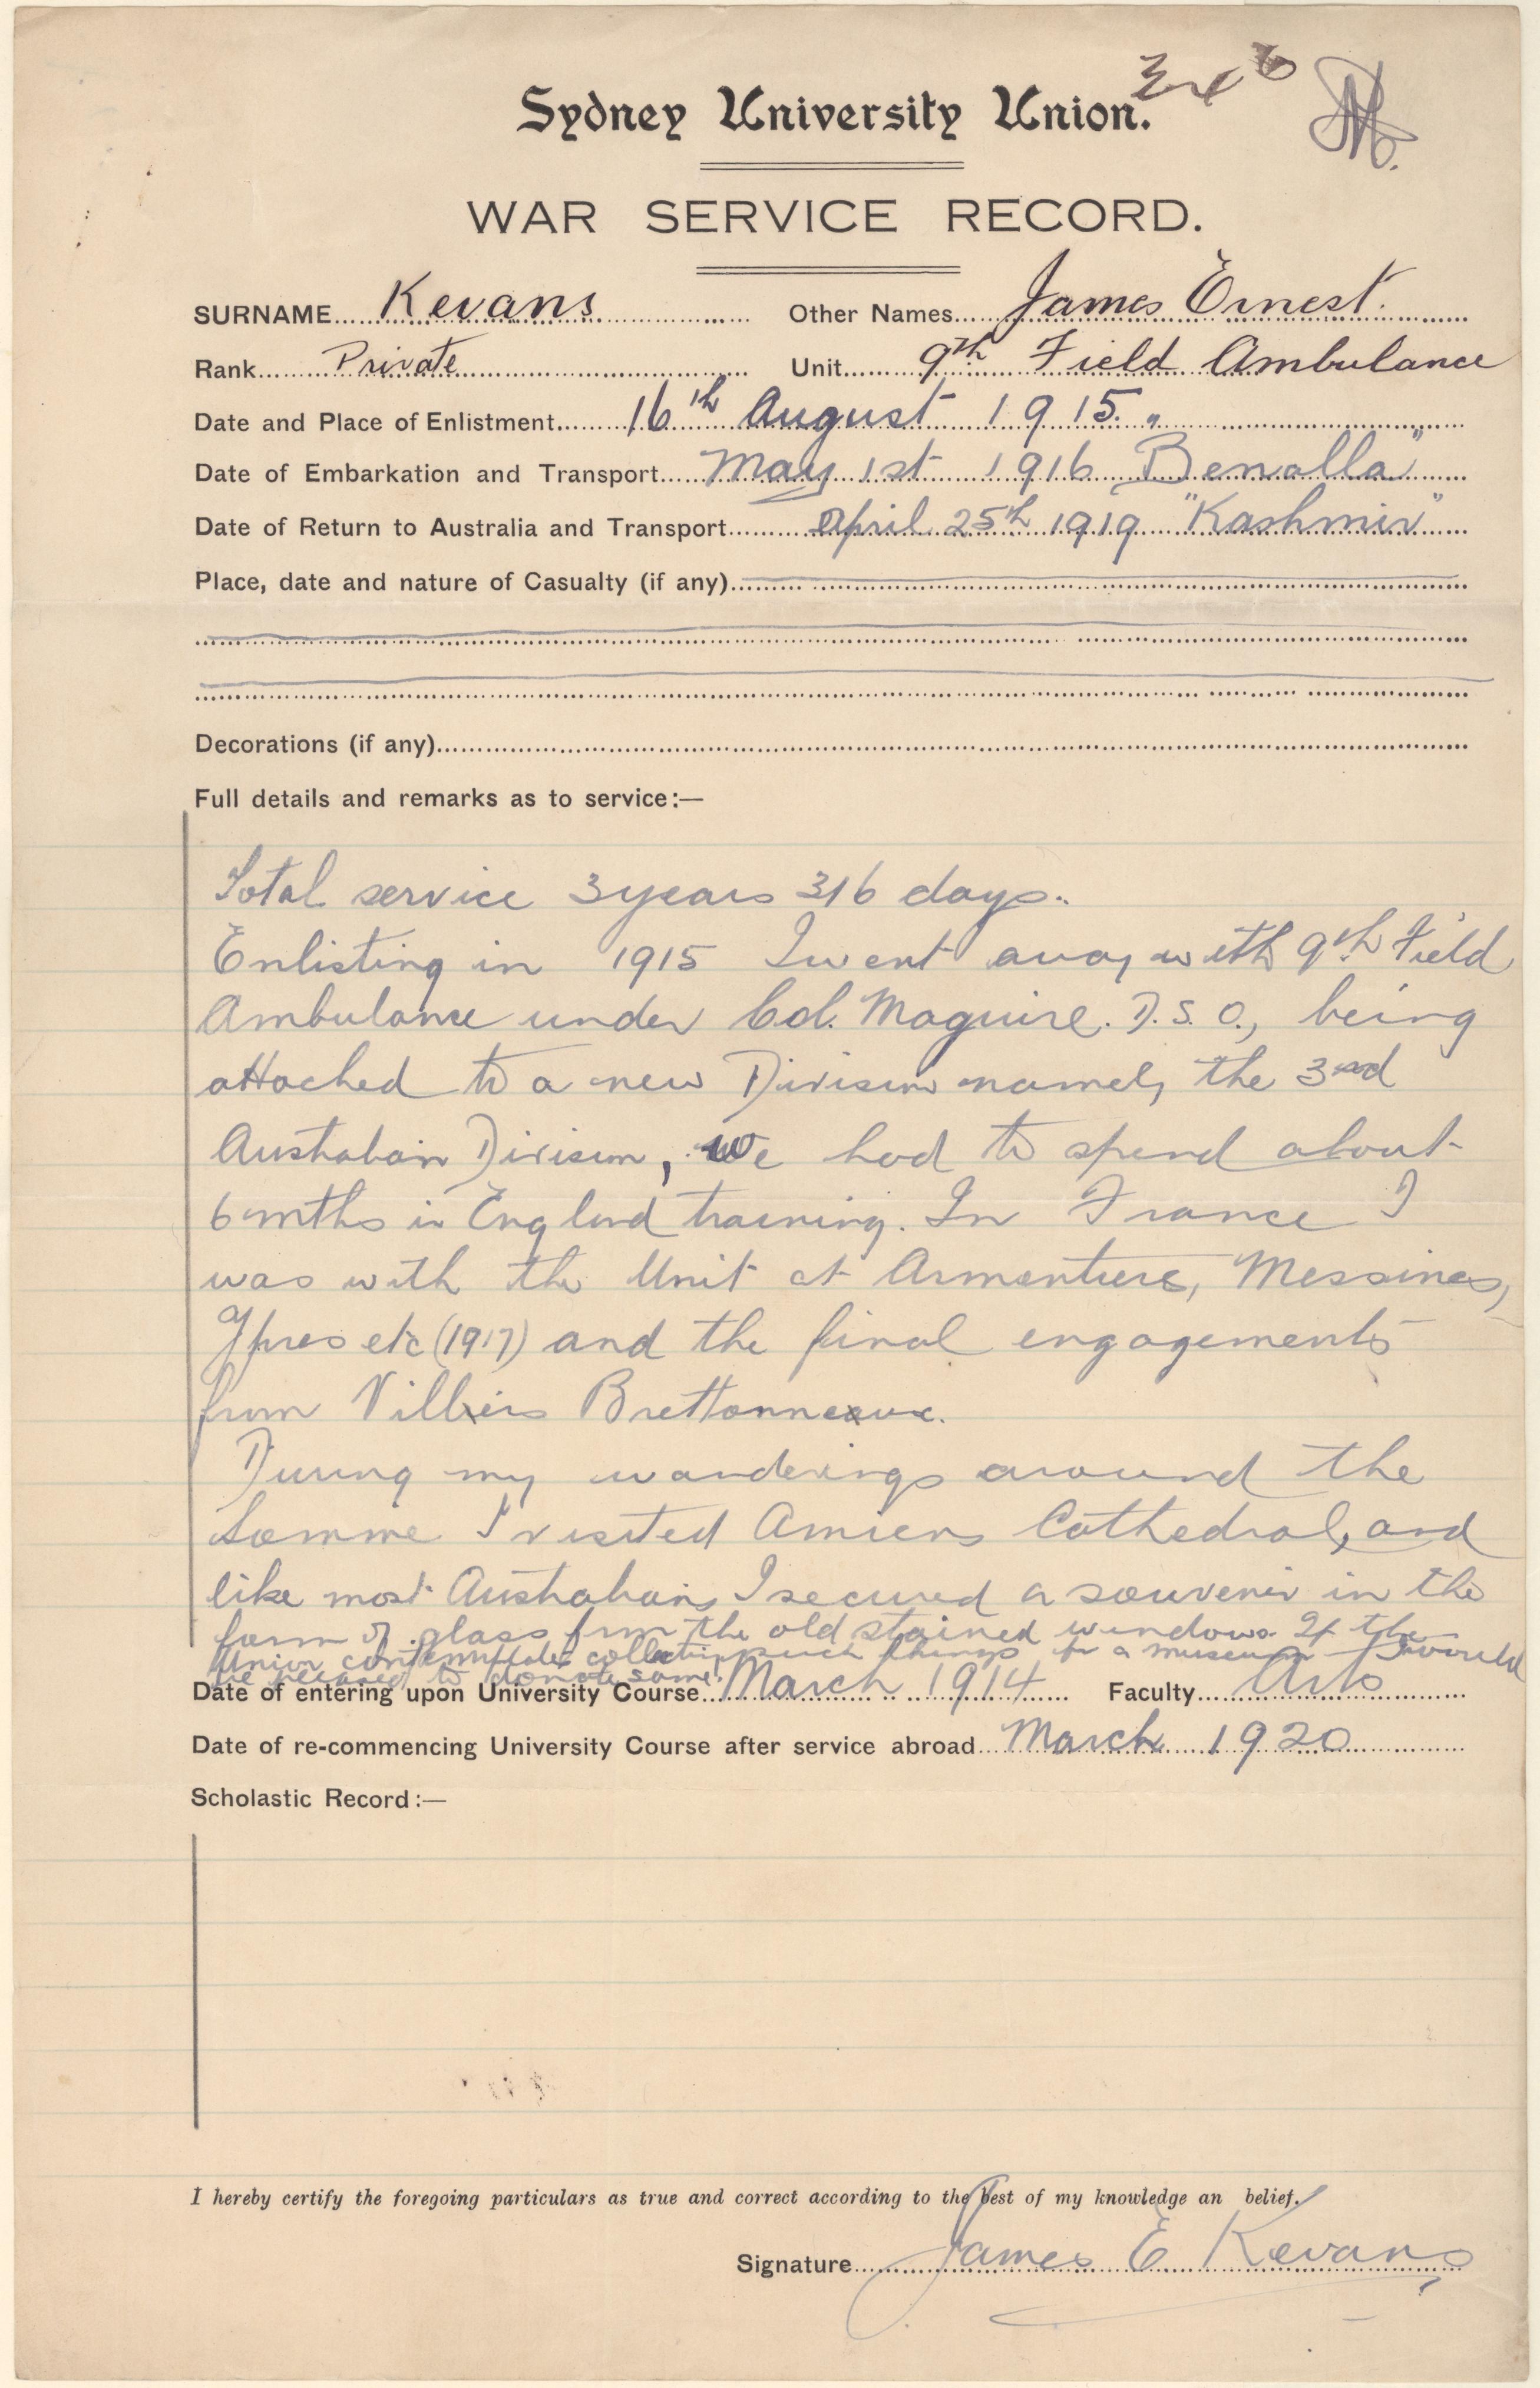 Sydney University Union.
WAR SERVICE RECORD.
SURNAME Kevans Other Names James Ernest.
Rank Private Unit 9th Field Ambulance
Date and Place of Enlistment 16th August 1915. "
Date of Embarkation and Transport May 1st 1916 Benalla"
Date of Return to Australia and Transport April 25th 1919 "Kashmir"
Place, date and nature of Casualty (if any)
Decorations (if any)
Full details and remarks as to service:—
Total service 3 years 316 days.
Enlisting in 1915 I went away with 9th Field
Ambulance under Col. Maguire. D.S.O., being
attached to a new Division namely the 3rd
Australian Division, we had to spend about
6 mths in England training. In France I
was with the Unit at Armentiers, Messines,
Ypres etc (1917) and the final engagements
from Villiers Brettonneaux.
During my wanderings around the
Somme I visited Amiens Cathedral, and
like most Australians I secured a souvenir in the
form of glass from the old stained windows. If the
Union contemplates collecting such things for a museum I would
be pleased to donate same.
Date of entering upon University Course March 1914 Faculty Arts
Date of re-commencing University Course after service abroad March 1920
Scholastic Record:—
I hereby certify the foregoing particulars as true and correct according to the best of my knowledge an belief.
Signature James E Kevans